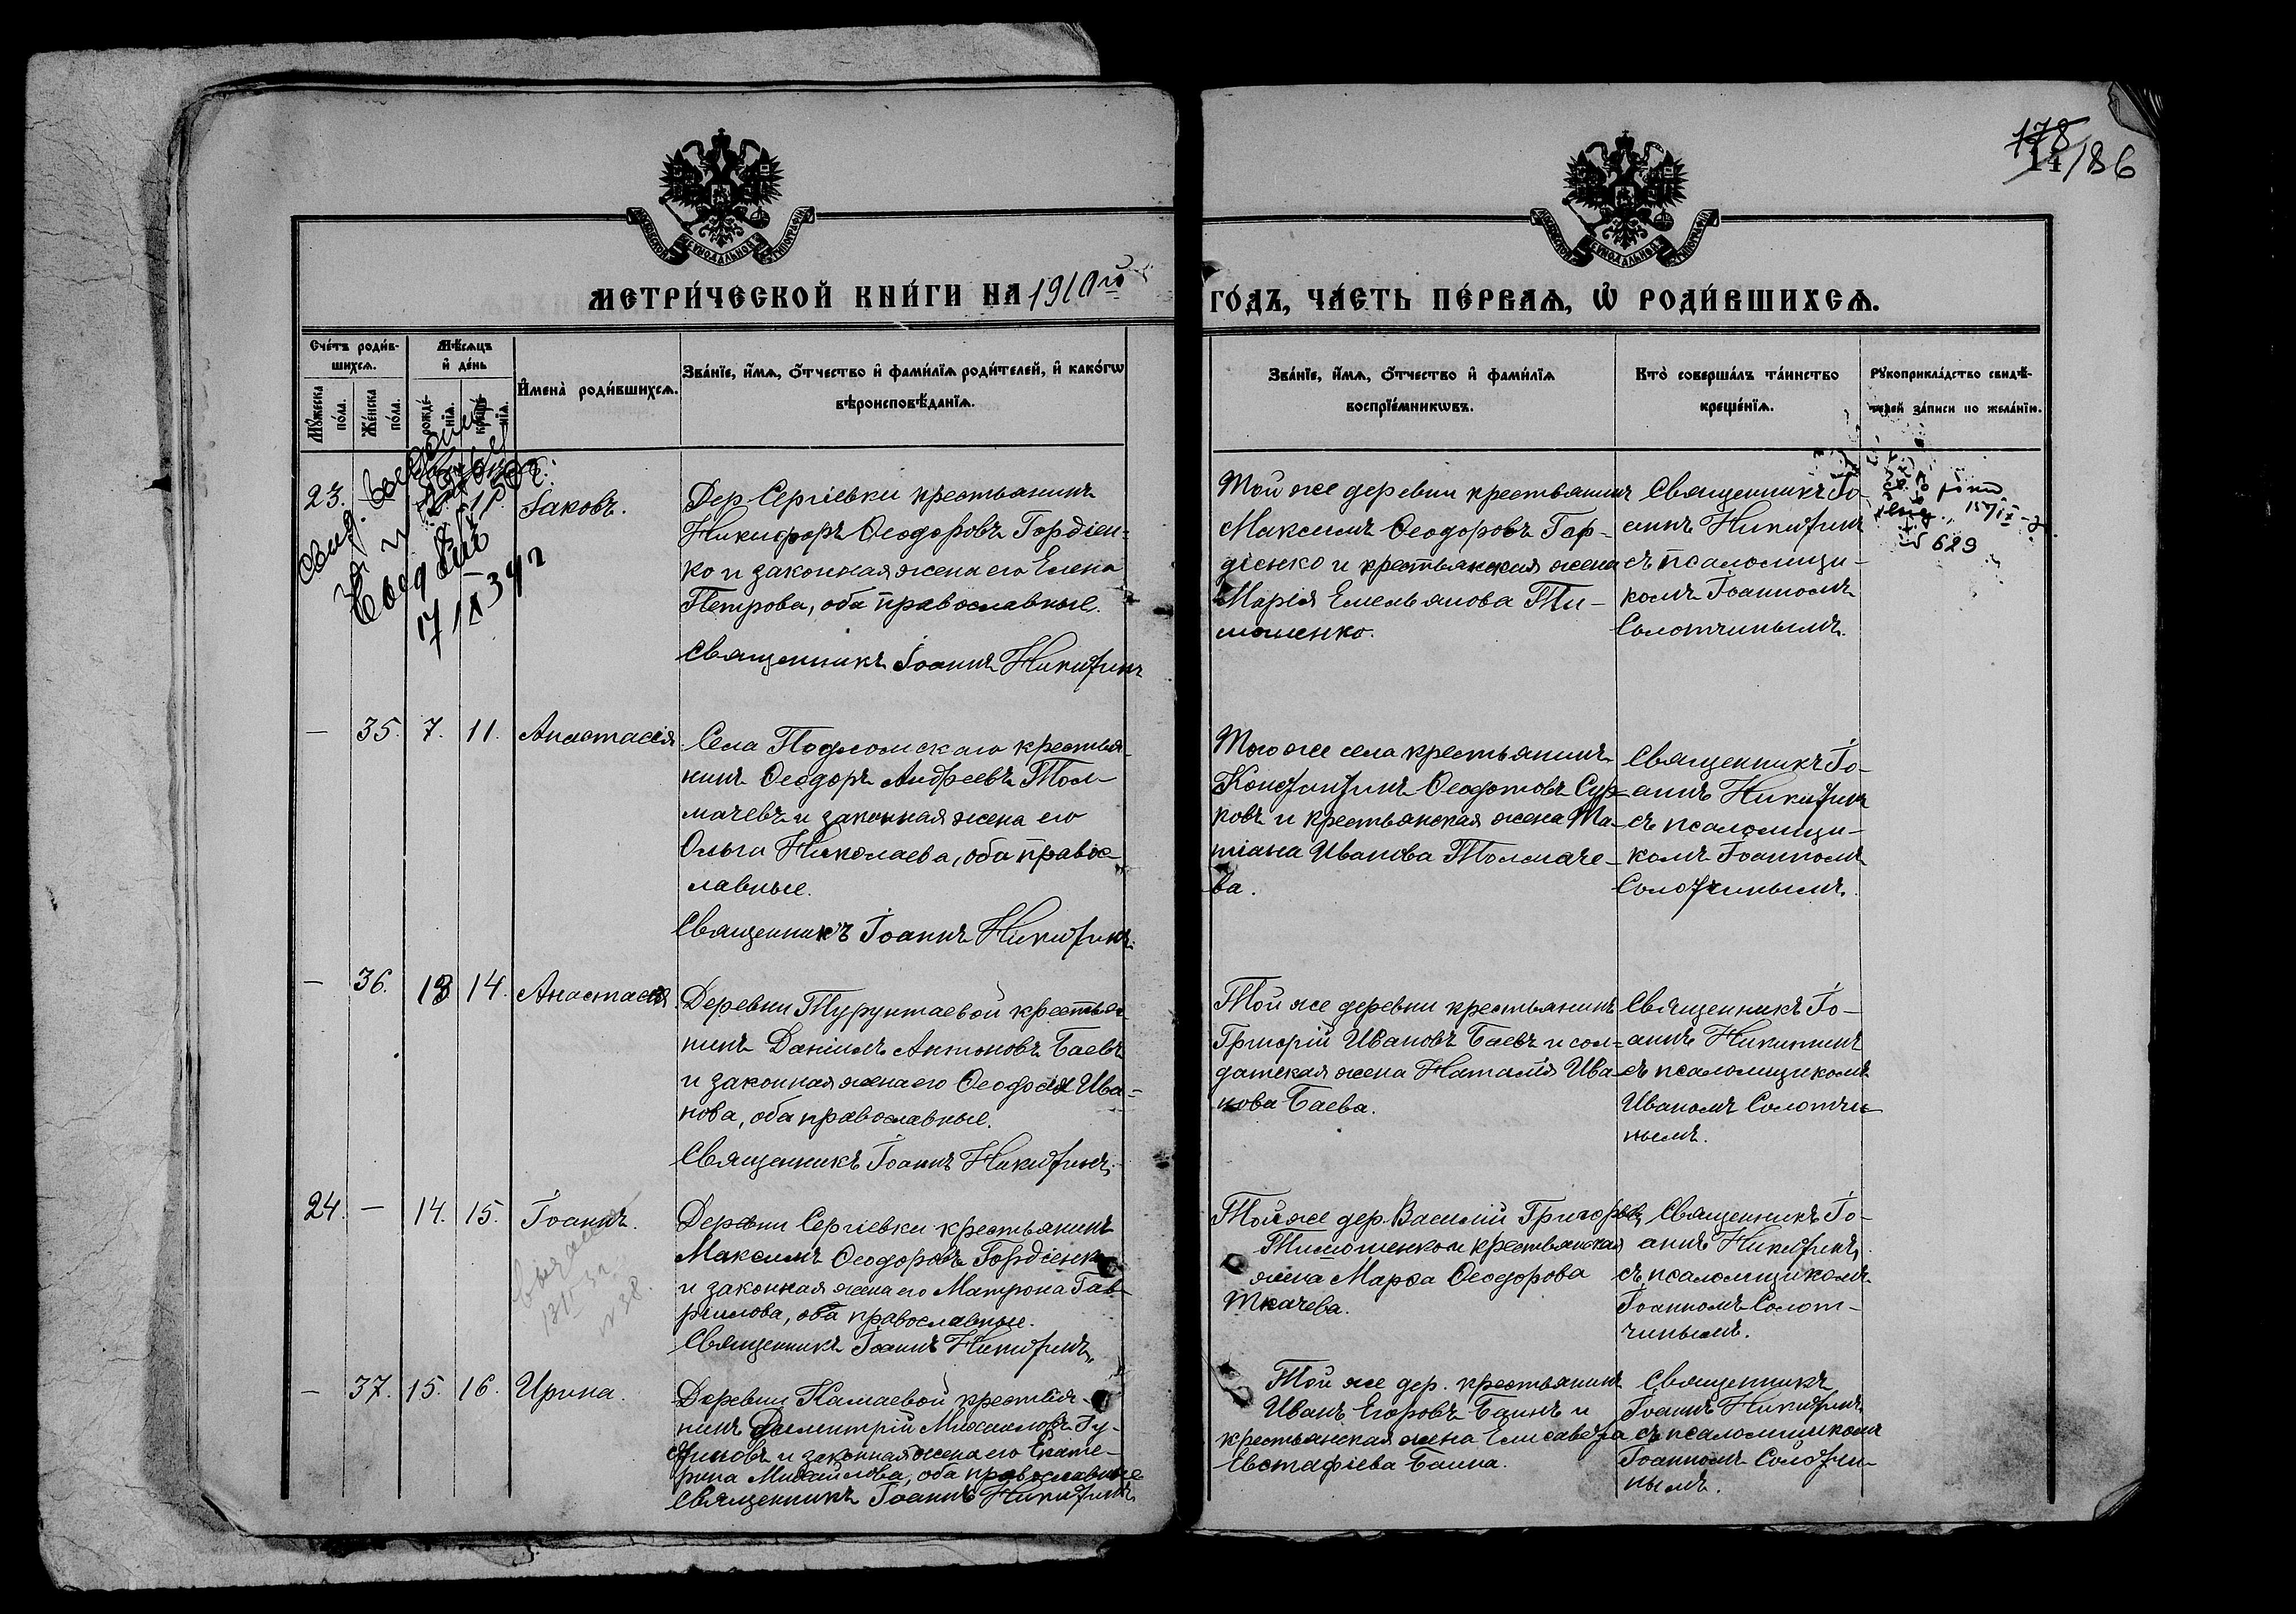 178
14/186
МЕТРИ́ЧЕСКОЙ КНИ́ГИ НА 1910й
ГО́ДЪ, ЧА́СТЬ ПЕ́РВАѦ, Ѽ РОДИ́ВШИХСѦ.
Сче́тъ роди́в-
шихсѧ.
Мꙋ́жеска по́ла.
Же́нска по́ла.
Мѣ́сѧцъ
и҆ де́нь
рожде́-нїѧ.
креще́-нїѧ.
И҆мена̀ роди́вшихсѧ.
Зва́нїе, и҆́мѧ, ѻ҆́тчество и҆ фами́лїѧ роди́телей, и҆ како́гѡ
вѣроисповѣ́данїѧ.
Зва́нїе, и҆́мѧ, ѻ҆́тчество и҆ фами́лїѧ
воспрїе́мникѡвъ.
Кто̀ соверша́лъ та́инство
креще́нїѧ.
Рꙋкоприкла́дство свидѣ́-
телей за́писи по жела́нїю.
23.
Іаковъ.
Дер Сергіевки крестьянинъ
Никифоръ Ѳеодоровъ Гордіен-
ко и законная жена его Елена
Петрова, оба православные.
Священникъ Іоаннъ Никитинъ
Той же деревни крестьянинъ
Максимъ Ѳеодоровъ Гор-
діенко и крестьянская жена
Марія Емельянова Ти-
мошенко.
Священникъ Іо-
аннъ Никитинъ
съ псаломщи-
комъ Іоанномъ
Солотчинымъ.
629
— 35. 7. 11. Анастасія
Села Подломскаго крестья-
нинъ Ѳеодоръ Андреевъ Тол-
мачевъ и законная жена его
Ольга Николаева, оба правос-
лавные.
Священникъ Іоаннъ Никитинъ.
Того же села крестьянинъ
Константинъ Ѳеодотовъ Сур-
ковъ и крестьянская жена Та-
тіана Иванова Толмаче-
ва.
Священникъ Іо-
аннъ Никитинъ
съ псаломщи-
комъ Іоанномъ
Солотчинымъ.
— 36. 13 14. Анастасія
Деревни Турунтаевой крестья-
нинъ Даніилъ Антоновъ Баевъ
и законная жена его Ѳеодосія Ива-
нова, оба православные.
Священникъ Іоаннъ Никитинъ.
Той же деревни крестьянинъ
Григорій Ивановъ Баевъ и сол-
датская жена Наталія Ива-
нова Баева.
Священникъ Іо-
аннъ Никитинъ
съ псаломщикомъ
Иваномъ Солотчи-
нымъ.
24. — 14. 15. Іоаннъ.
Деревни Сергіевки крестьянинъ
Максимъ Ѳеодоровъ Гордіенко
и законная жена его Матрона Гав-
риилова, оба православные.
Священникъ Іоаннъ Никитинъ,
Той же дер. Василій Григорьевъ
Тимошенко и крестьянская
жена Марѳа Ѳеодорова
Ткачева.
Священникъ Іо-
аннъ Никитинъ,
съ псаломщикомъ
Іоанномъ Солот-
чинымъ.
— 37. 15. 16. Ирина.
Деревни Камаевой крестья-
нинъ Димитрій Михаиловъ
и законная жена его Екате-
рина Михайлова, оба православные
Священникъ Іоаннъ Никитинъ
Той же дер. крестьянинъ
Иванъ Егоровъ Баинъ и
крестьянская жена Елисавета
Евстафіева Баина.
Священникъ
Іоаннъ Никитинъ
съ псаломщикомъ
Іоанномъ Солотчи-
нымъ.